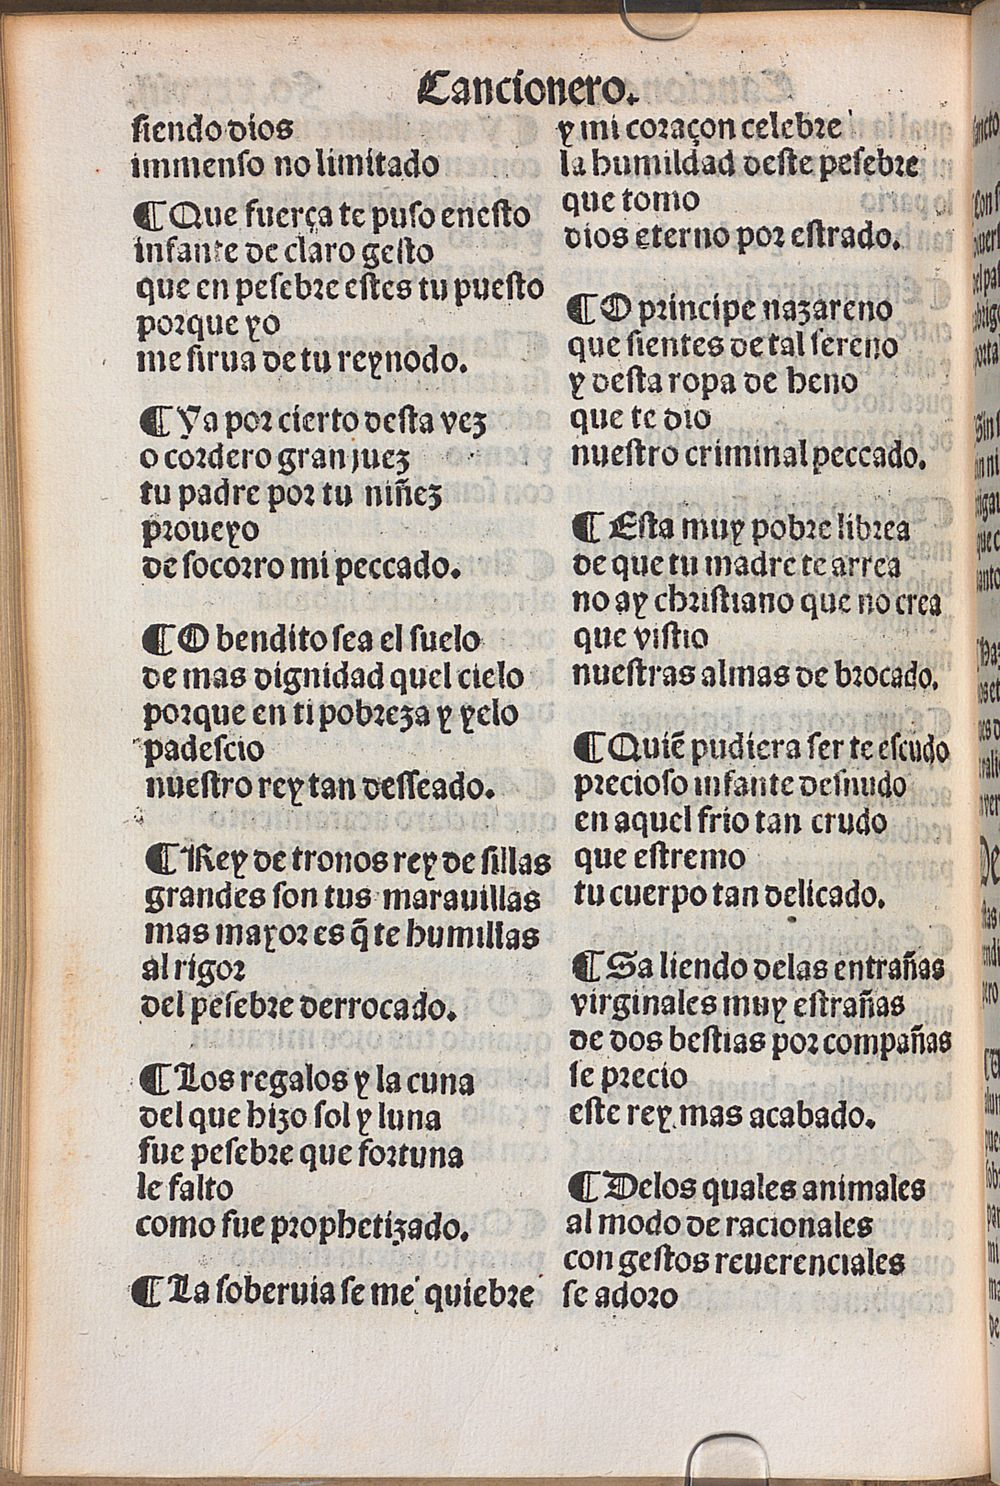 Cancionero.
siendo dios
immenso no limitado
¶ Que fuerça te puso enesto
infante de claro gesto
que en pesebre estes tu puesto
porque yo
me sirua de tu reynodo.
¶ Ya por cierto desta vez
o cordero gran juez
tu padre por tu niñez
proueyo
de socorro mi peccado.
¶ O bendito sea el suelo
de mas dignidad quel cielo
porque en ti pobreza y yelo
padescio
nuestro rey tan desseado.
¶ Rey de tronos rey de sillas
grandes son tus marauillas
mas mayor es q̃ te humillas
al rigor
del pesebre derrocado.
¶ Los regalos y la cuna
del que hizo sol y luna
fue pesebre que fortuna
le falto
como fue prophetizado.
¶ La soberuia se me quiebre
y mi coraçon celebre
la humildad deste pesebre
que tomo
dios eterno por estrado.
¶ O principe nazareno
que sientes de tal sereno
y desta ropa de heno
que te dio
nuestro criminal peccado.
¶ Esta muy pobre librea
de que tu madre te arrea
no ay christiano que no crea
que vistio
nuestras almas de brocado.
¶ Quiē pudiera ser te escudo
precioso infante desnudo
en aquel frio tan crudo
que estremo
tu cuerpo tan delicado.
¶ Sa liendo delas entrañas
virginales muy estrañas
de dos bestias por compañas
se precio
este rey mas acabado.
¶ Delos quales animales
al modo de racionales
con gestos reuerenciales
se adoro